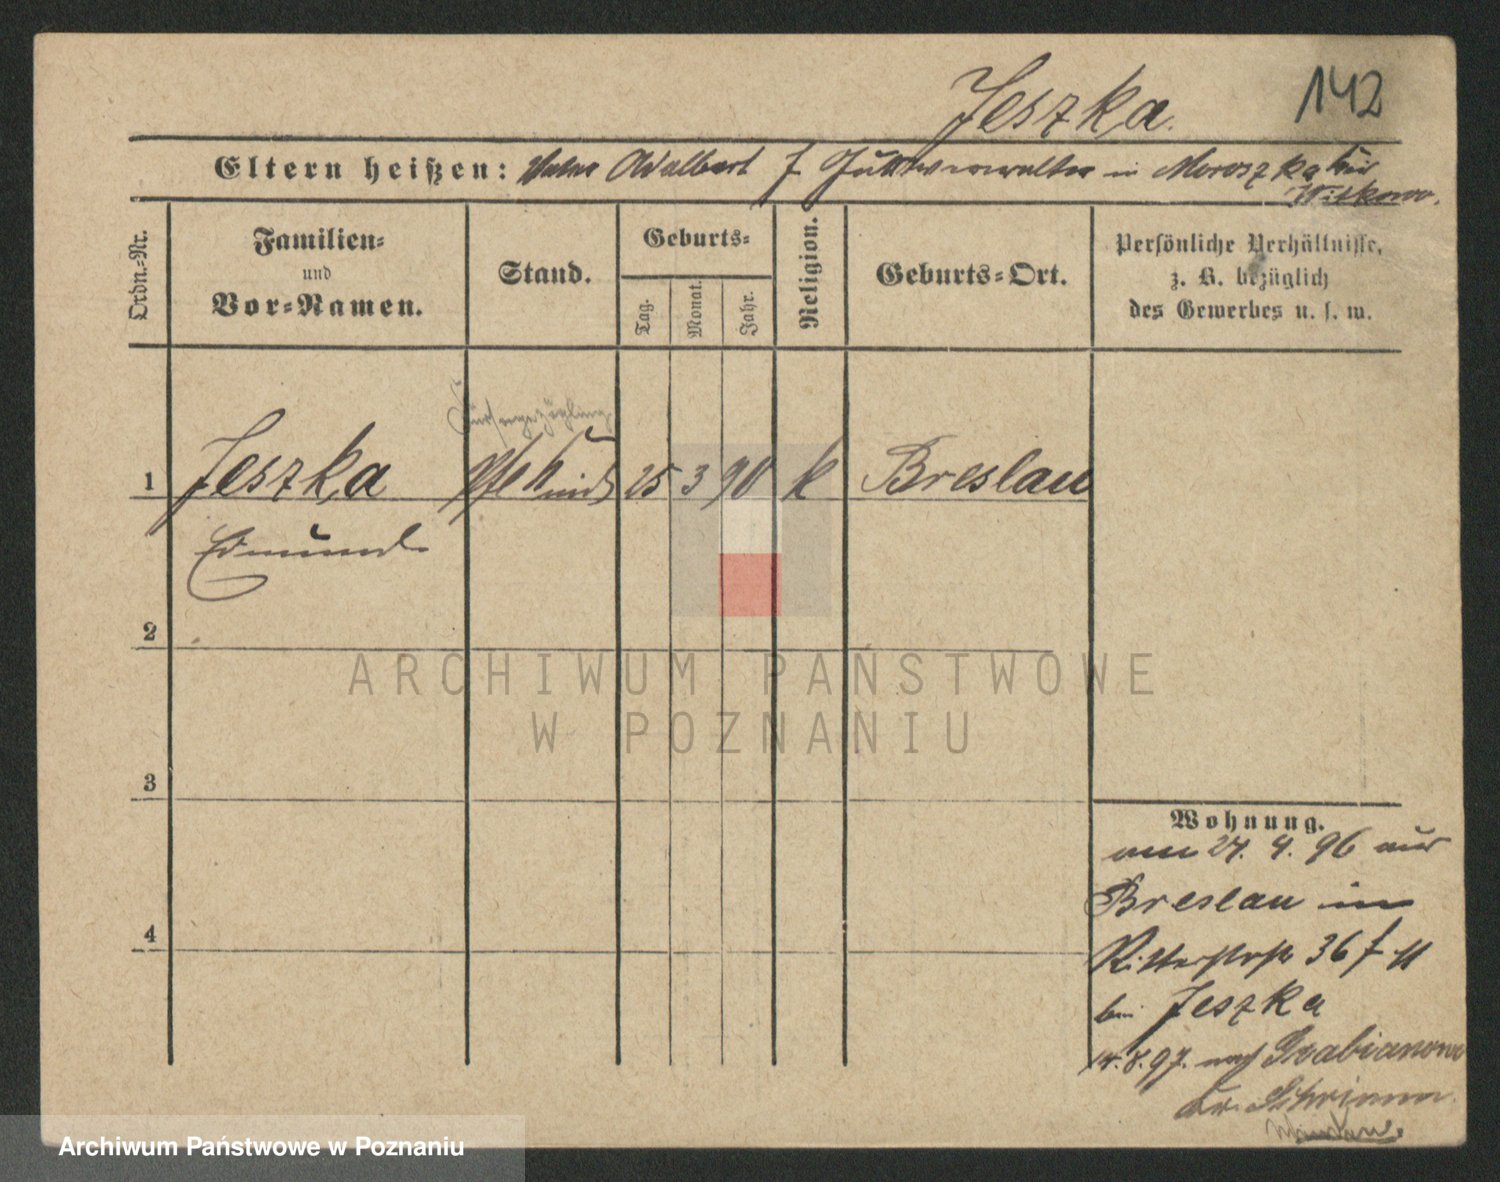 142
Jeszka.
Eltern heißen: Vater Adalbert J. Gutsverwalter in Moroszka bei
Witkowo.
Ordn.-Nr.
Familien-
und
Vor-Namen.
Stand.
Geburts-
Tag.
Monat.
Jahr.
Religion.
Geburts-Ort.
Persönliche Verhältnisse,
z. B. bezüglich
des Gewerbes u. s. w.
Fürsorgezögling
1 Jeszka Pflekind 25 3 90 k Breslau
Edmund
2
3
4
ARCHIWUM PAŃSTWOWE
W POZNANIU
Wohnung.
am 24. 4. 96 aus
Breslau in
Ritterstr 36
bei Jeszka
14.8.97. nach
Kr. Schrimm.
Archiwum Państwowe w Poznaniu